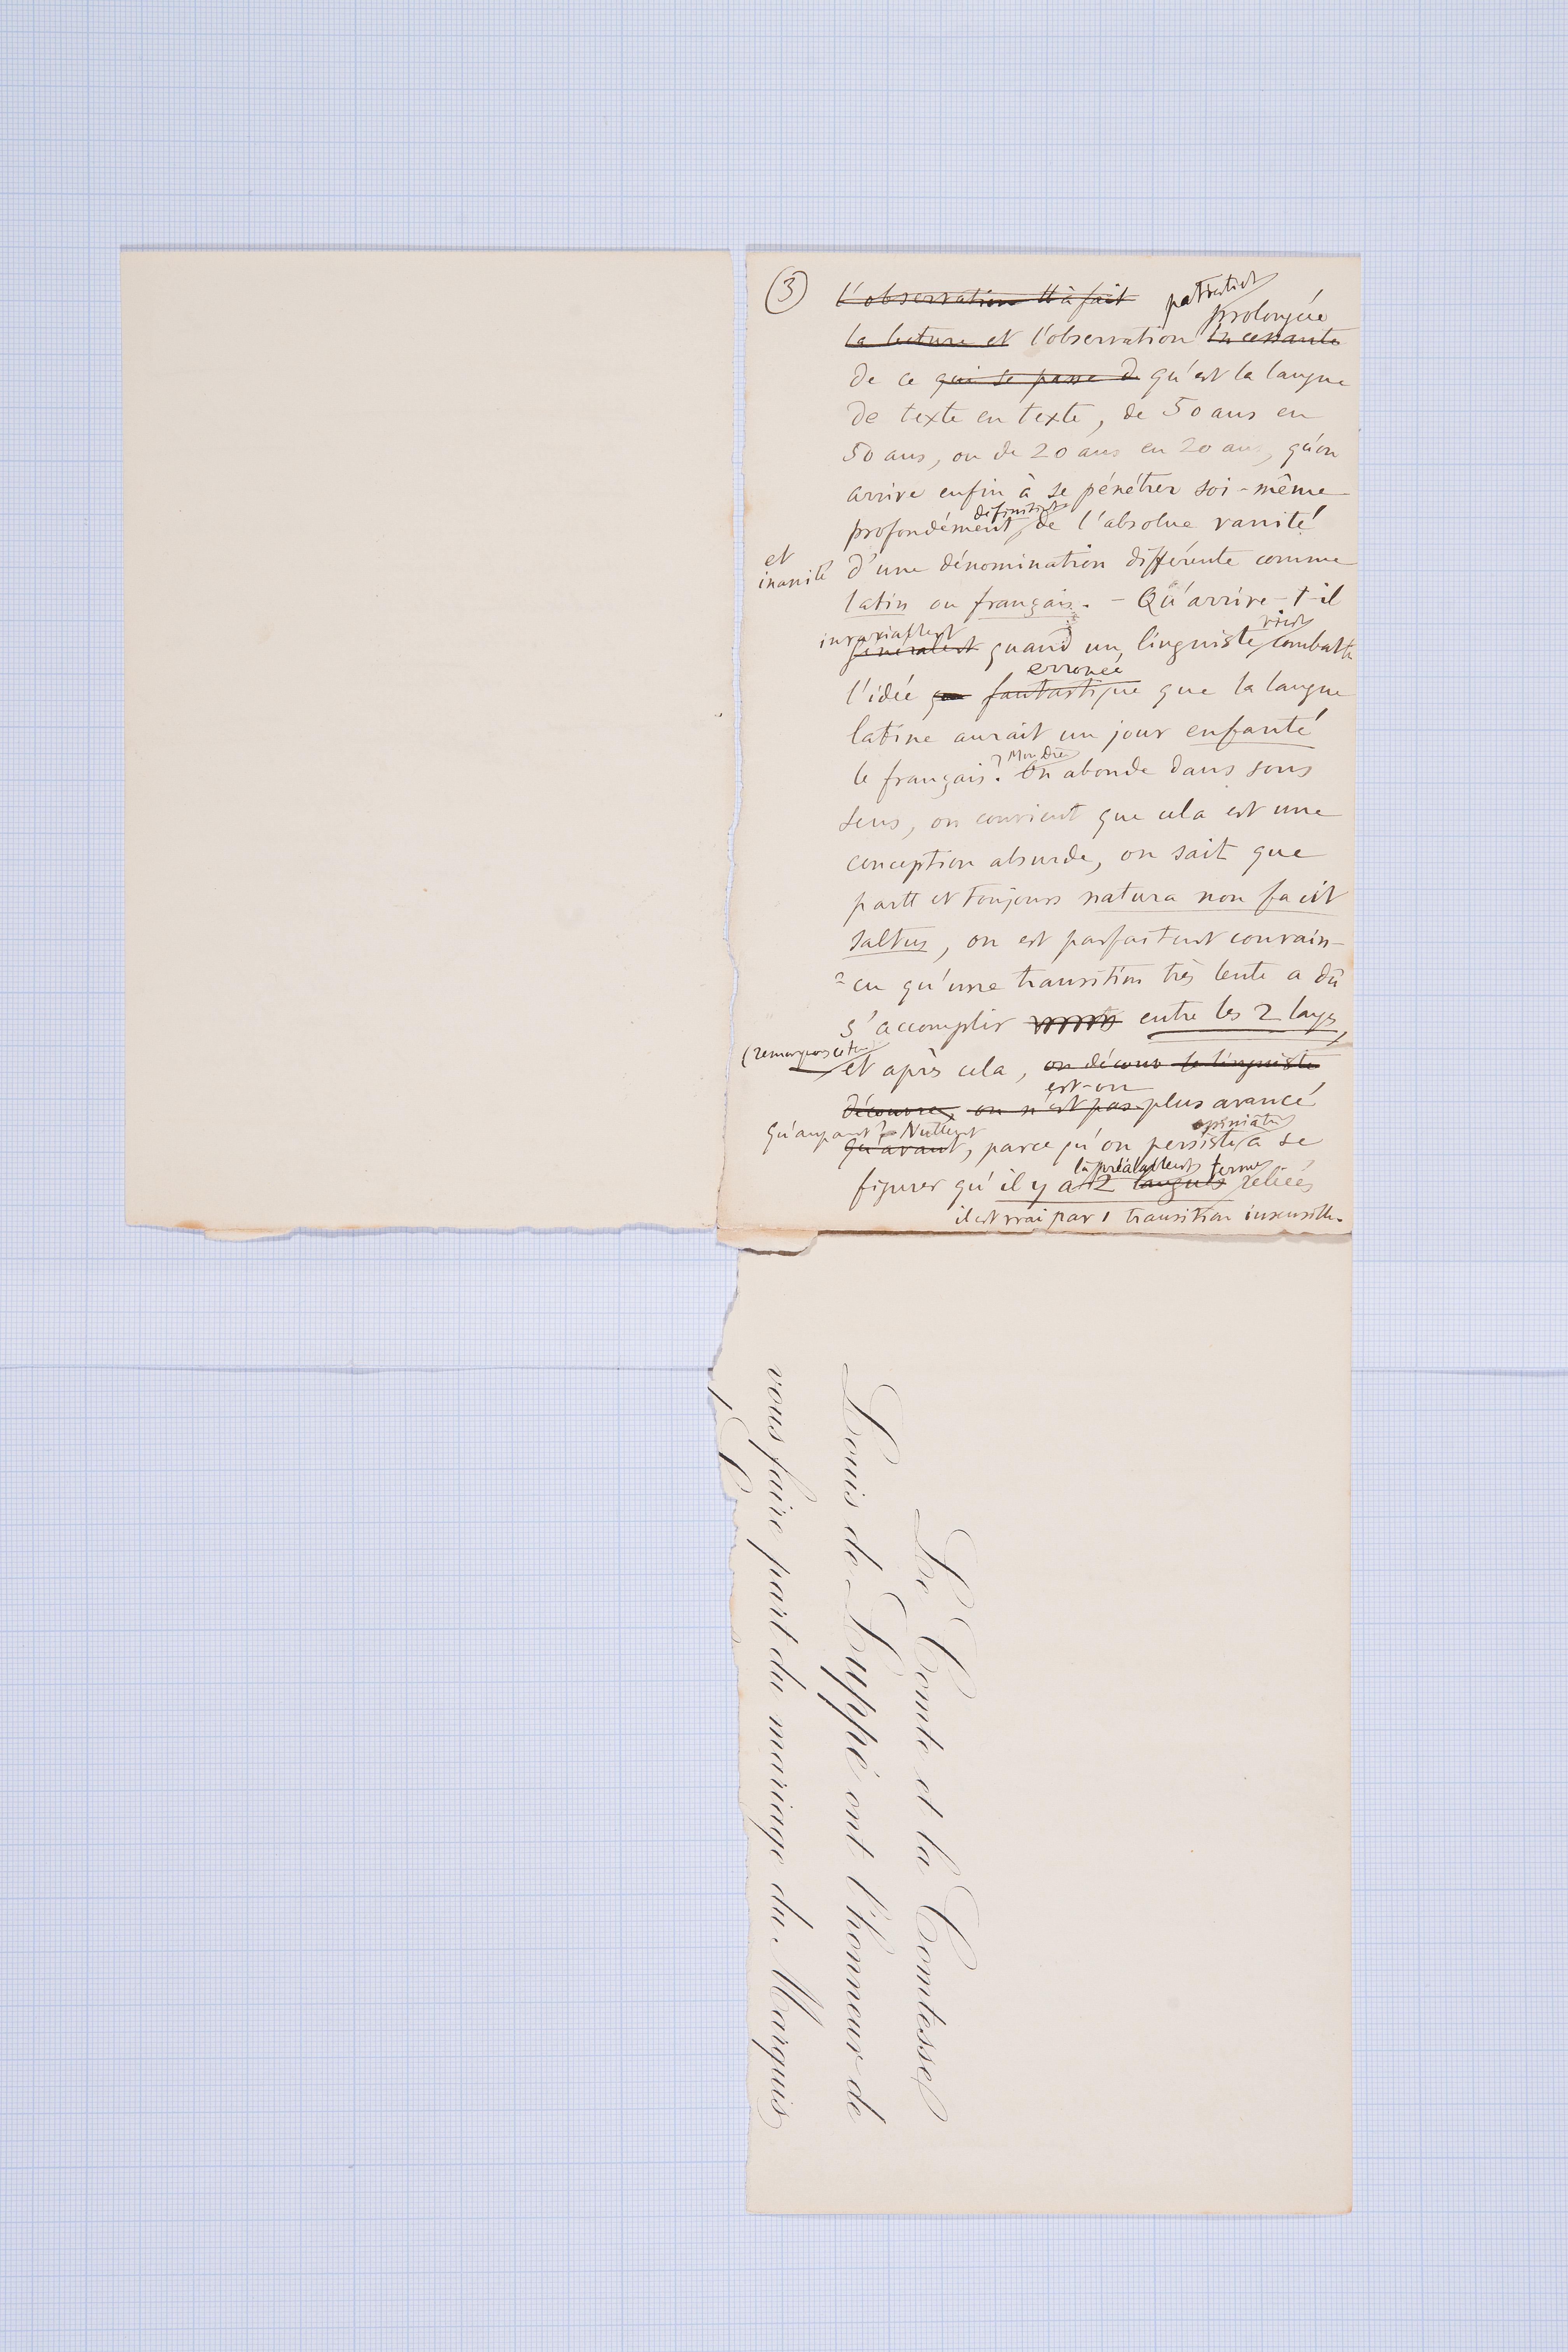 ③ l'observation tt à fait patientt
prolongée
la lecture et l'observation incessante
de ce qui se passe d qu'est la langue
de texte en texte, de 50 ans en
50 ans, ou de 20 ans en 20 ans, qu'on
arrive enfin à se pénétrer soi-même
définitivt
profondément de l'absolue vanité
et
inanité d'une dénomination différente comme
latin ou français. – Qu'arrive-t-il
invariablent
généralent quand un linguiste combatte
erronée
l'idée que fantastique que la langue
latine aurait un jour enfanté
? Mon Dieu
le français. On abonde dans sons
sens, on convient que cela est une
conception absurde, on sait que
partt et toujours natura non facit
saltus, on est parfaitent convain-
=cu qu'une transition très lente a dû
s'accomplir entre les 2 langs,
(remarquons
et après cela, on découv le linguiste
est-on
découvre, on n'est pas plus avancé
qu'aupant? – Nullent opiniâtrt
qu'avant, parce qu'on persiste à se
là préalablent termes
figurer qu'il y a 2 langues reliées
il est vrai par 1 transition insensible.
Le Comte et la Comtesse
Louis de Luppé ont l'honneur de
vous faire part du mariage du Marquis